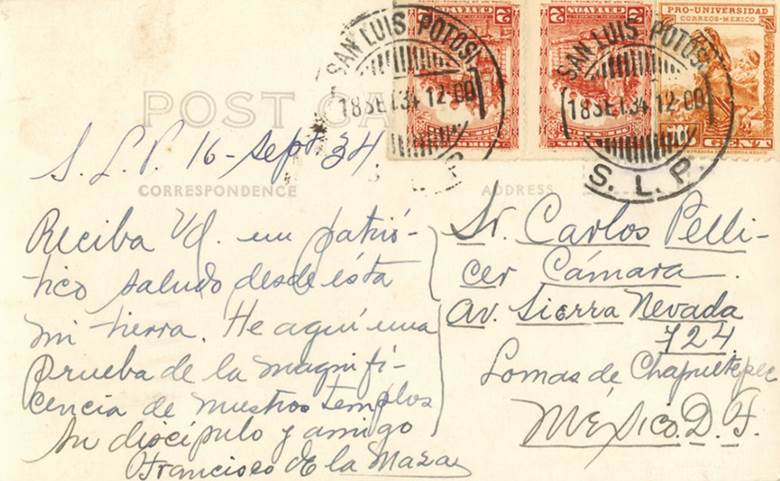 SAN LUIS POTOSI
18 SET. 34 12-00
S. L. P.
SAN LUIS POTOSI
18 SET. 34 12-00
S. L. P.
2
2
2
2
PRO-UNIVERSIDAD
CORREOS-MEXICO
CENT
POST CA
CORRESPONDENCE
ADDRESS
S. L. P. 16-Sept 34.
Reciba Vd. un patrió-
tico saludo desde ésta
mi tierra. He aquí una
prueba de la magnifi-
cencia de nuestros templos
Su discípulo y amigo
Francisco de la Maza
Sr. Carlos Pelli-
cer Cámara.
Av. Sierra Nevada
724
Lomas de Chapultepec
México. D. F.